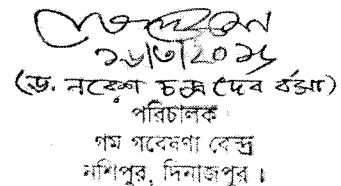 (ড. নরেশ চন্দ্র দেব বর্মা)
পরিচালক
গম গবেষণা কেন্দ্র
নশিপুর, দিনাজপুর।